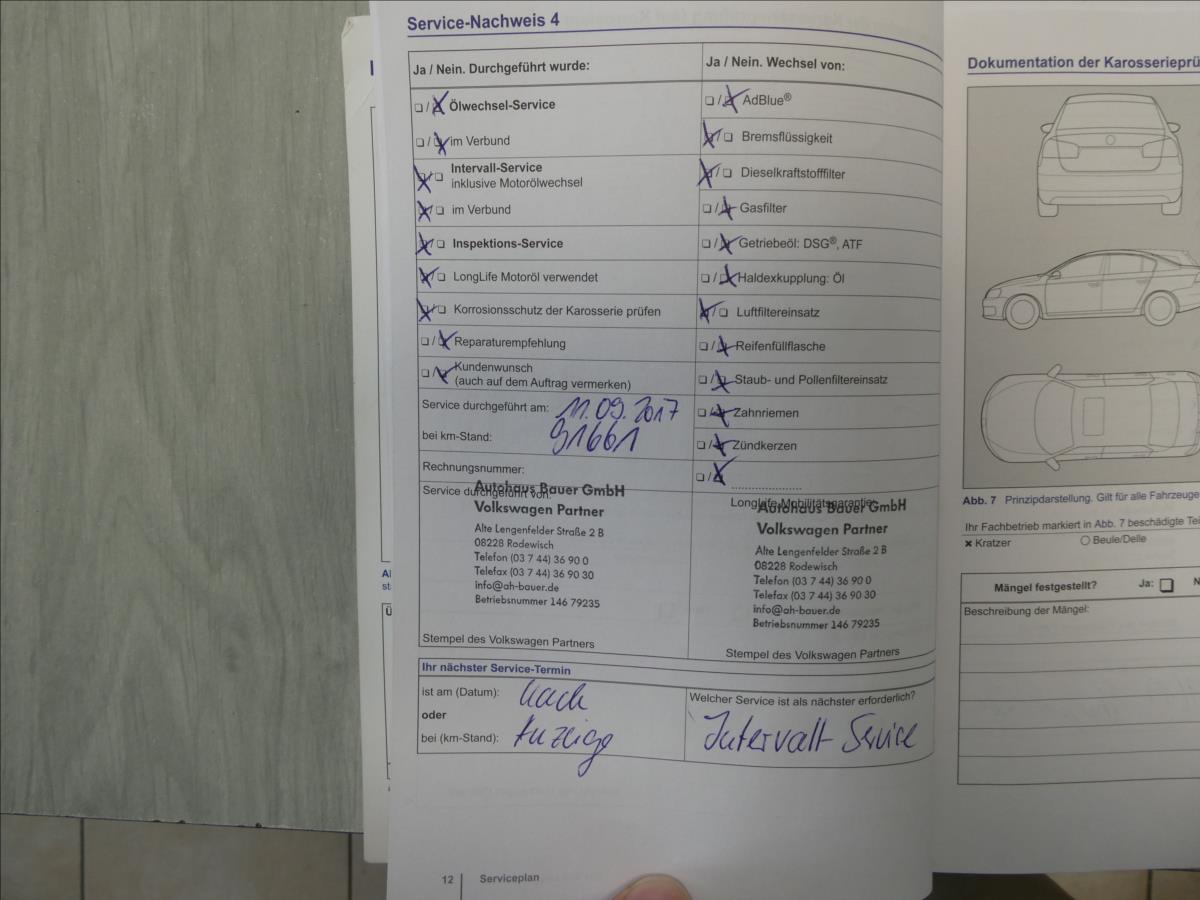 Service-Nachweis 4
Ja / Nein. Durchgeführt wurde:
❏ / ❏ Ölwechsel-Service
❏ / ❏ im Verbund
❏ / ❏ Intervall-Service
inklusive Motorölwechsel
❏ / ❏ im Verbund
❏ / ❏ Inspektions-Service
❏ / ❏ LongLife Motoröl verwendet
❏ / ❏ Korrosionsschutz der Karosserie prüfen
❏ / ❏ Reparaturempfehlung
❏ / ❏ Kundenwunsch
(auch auf dem Auftrag vermerken)
Service durchgeführt am: 11.09.2017
bei km-Stand: 91661
Rechnungsnummer:
Service durchgeführt von:
Autohaus Bauer GmbH
Volkswagen Partner
Alte Lengenfelder Straße 2 B
08228 Rodewisch
Telefon (03 7 44) 36 90 0
Telefax (03 7 44) 36 90 30
info@ah-bauer.de
Betriebsnummer 146 79235
Stempel des Volkswagen Partners
Ja / Nein. Wechsel von:
❏ / ❏ AdBlue®
❏ / ❏ Bremsflüssigkeit
❏ / ❏ Dieselkraftstofffilter
❏ / ❏ Gasfilter
❏ / ❏ Getriebeöl: DSG®, ATF
❏ / ❏ Haldexkupplung: Öl
❏ / ❏ Luftfiltereinsatz
❏ / ❏ Reifenfüllflasche
❏ / ❏ Staub- und Pollenfiltereinsatz
❏ / ❏ Zahnriemen
❏ / ❏ Zündkerzen
❏ / ❏ ....................
LongLife-Mobilitätsgarantie:
Autohaus Bauer GmbH
Volkswagen Partner
Alte Lengenfelder Straße 2 B
08228 Rodewisch
Telefon (03 7 44) 36 90 0
Telefax (03 7 44) 36 90 30
info@ah-bauer.de
Betriebsnummer 146 79235
Stempel des Volkswagen Partners
Ihr nächster Service-Termin
ist am (Datum): nach
oder
bei (km-Stand): Anzeige
Welcher Service ist als nächster erforderlich?
Intervall Service
12 Serviceplan
Dokumentation der Karosserieprü
Abb. 7 Prinzipdarstellung. Gilt für alle Fahrzeuge
Ihr Fachbetrieb markiert in Abb. 7 beschädigte Teil
✖ Kratzer ○ Beule/Delle
Mängel festgestellt? Ja: ❏ N
Beschreibung der Mängel: